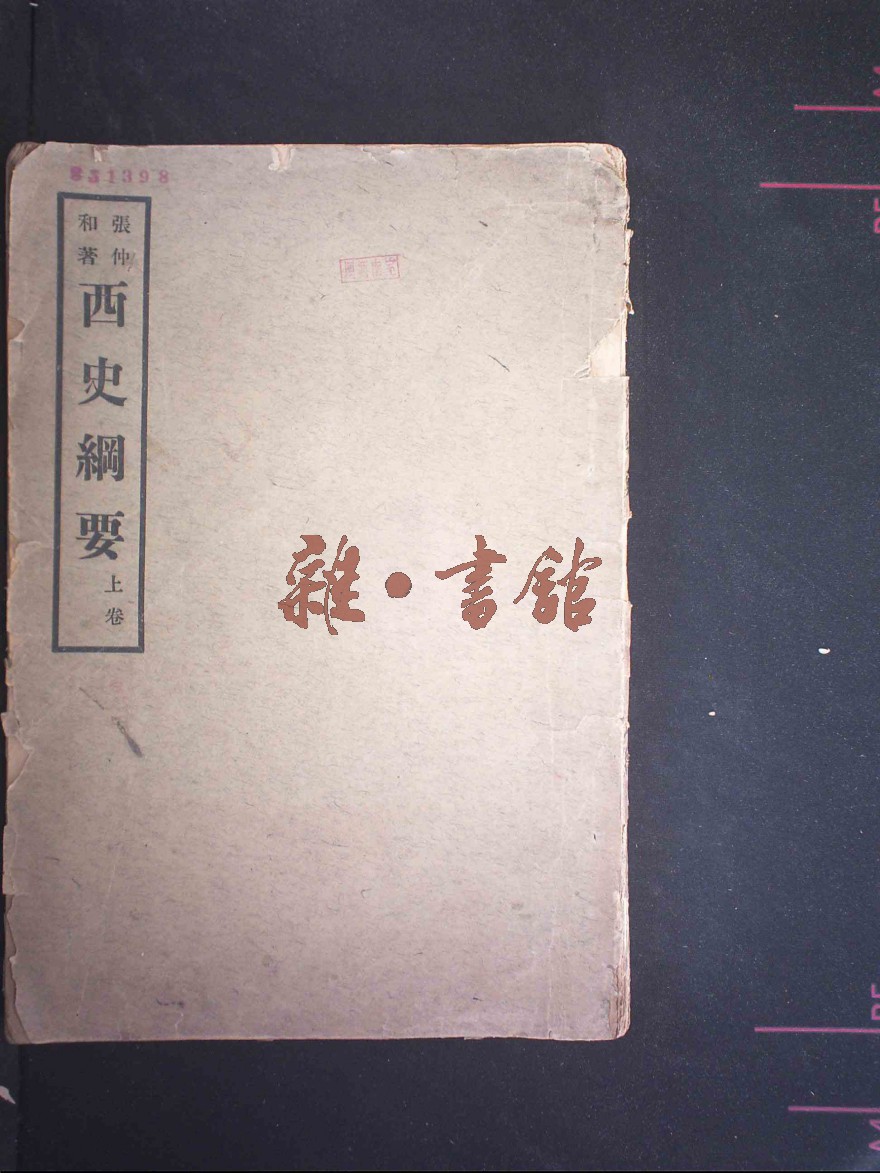 821398
張仲和著
西史綱要
上卷
雜·書館